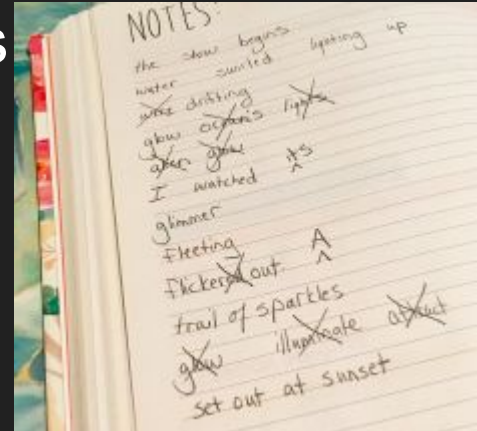 S
NOTES:
the show begins
water swirled lighting up
was drifting
glow organis lights
green glow
I watched its
glimmer
Fleeting
flickered out. A
trail of sparkles
glow illuminate attract
set out at sunset